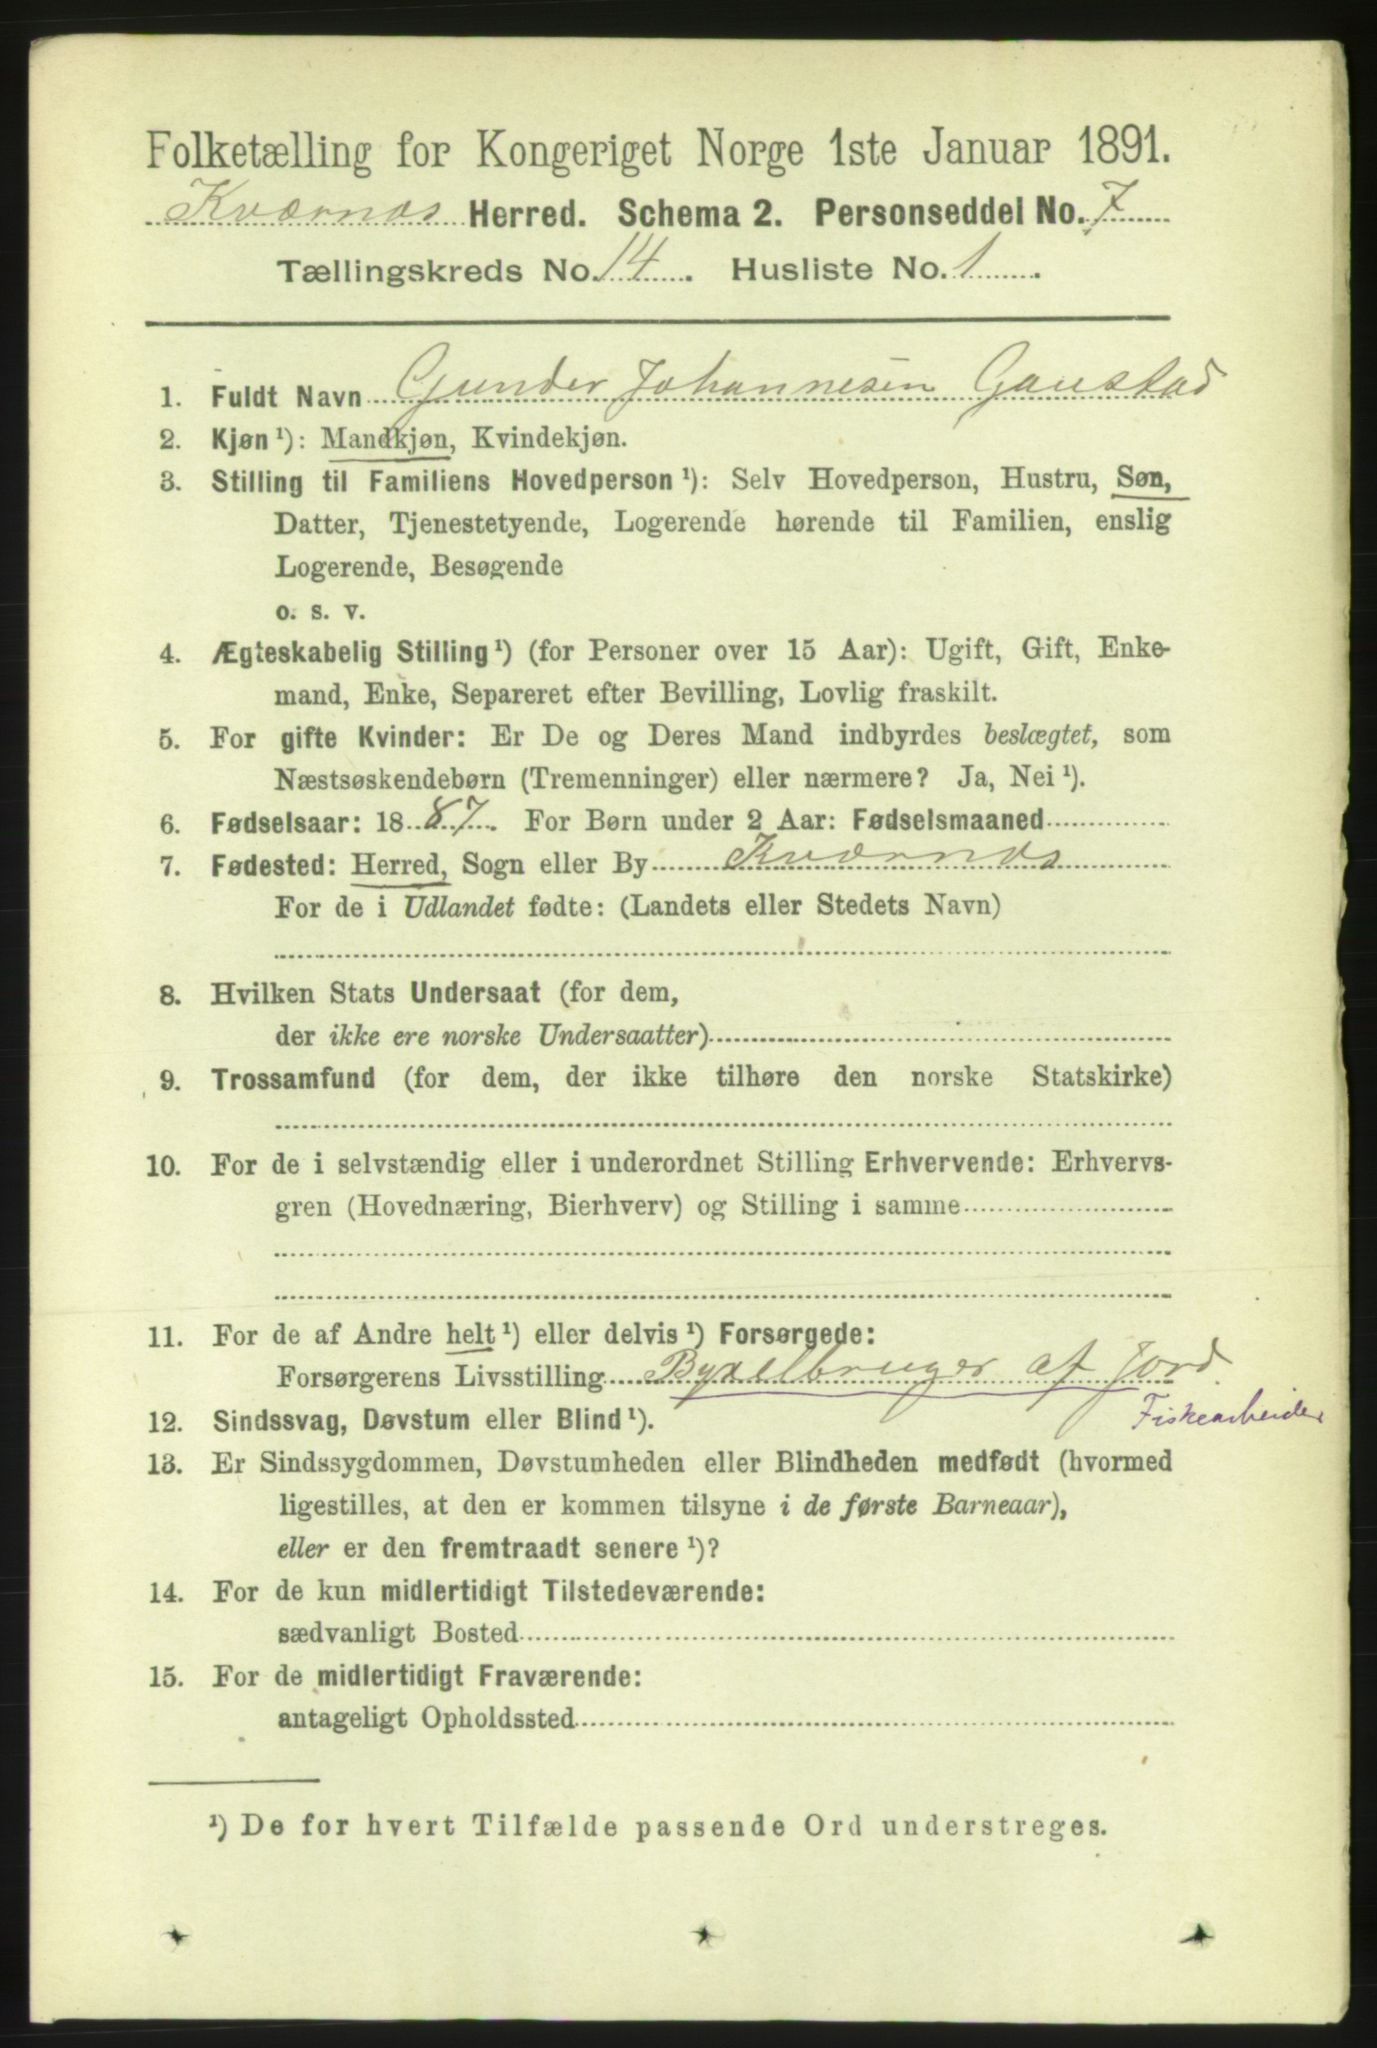 Folketælling for Kongeriget Norge 1ste Januar 1891.
Kværnæs Herred. Schema 2. Personseddel No. 7
Tællingskreds No. 14. Husliste No. 1.
1. Fuldt Navn Gunder Johannesen Gaustad
2. Kjøn ¹): Mandkjøn, Kvindekjøn.
3. Stilling til Familiens Hovedperson ¹): Selv Hovedperson, Hustru, Søn,
Datter, Tjenestetyende, Logerende hørende til Familien, enslig
Logerende, Besøgende
o. s. v.
4. Ægteskabelig Stilling ¹) (for Personer over 15 Aar): Ugift, Gift, Enke-
mand, Enke, Separeret efter Bevilling, Lovlig fraskilt.
5. For gifte Kvinder: Er De og Deres Mand indbyrdes beslægtet, som
Næstsøskendebørn (Tremenninger) eller nærmere? Ja, Nei ¹).
6. Fødselsaar: 1887. For Børn under 2 Aar: Fødselsmaaned
7. Fødested: Herred, Sogn eller By Kværnæs
For de i Udlandet fødte: (Landets eller Stedets Navn)
8. Hvilken Stats Undersaat (for dem,
der ikke ere norske Undersaatter)
9. Trossamfund (for dem, der ikke tilhøre den norske Statskirke)
10. For de i selvstændig eller i underordnet Stilling Erhvervende: Erhvervs-
gren (Hovednæring, Bierhverv) og Stilling i samme
11. For de af Andre helt ¹) eller delvis ¹) Forsørgede:
Forsørgerens Livsstilling Byxelbruger af Jord.
Fiskearbeider
12. Sindssvag, Døvstum eller Blind ¹).
13. Er Sindssygdommen, Døvstumheden eller Blindheden medfødt (hvormed
ligestilles, at den er kommen tilsyne i de første Barneaar),
eller er den fremtraadt senere ¹)?
14. For de kun midlertidigt Tilstedeværende:
sædvanligt Bosted
15. For de midlertidigt Fraværende:
antageligt Opholdssted
¹) De for hvert Tilfælde passende Ord understreges.